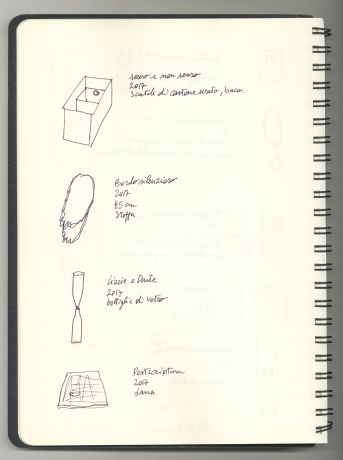 senso e non senso
2017
Scatola di cartone usato, buco
Bordo silenzioso
2017
45 cm
Stoffa
Lizzie e Dante
2017
bottiglie di vetro
Postscriptum
2017
Lana